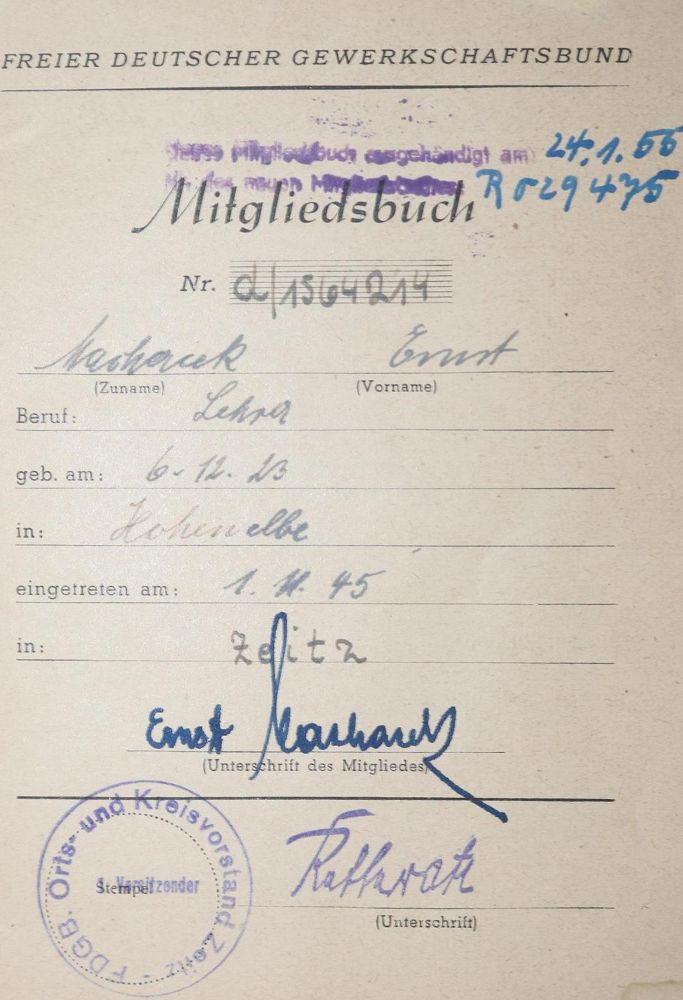 FREIER DEUTSCHER GEWERKSCHAFTSBUND
Neues Mitgliedsbuch ausgehändigt am 24.1.55
Nr. des neuen Mitgliedsbuches R 029475
Mitgliedsbuch
Nr. d/1564214
Ernst
(Zuname) (Vorname)
Beruf: Lehrer
geb. am: 6.12.23
in: Hohenelbe
eingetreten am: 1.11.45
in: Zeitz
Ernst
(Unterschrift des Mitgliedes)
FDGB. Orts- und Kreisvorstand Zeitz
1. Vorsitzender
Stempel
(Unterschrift)